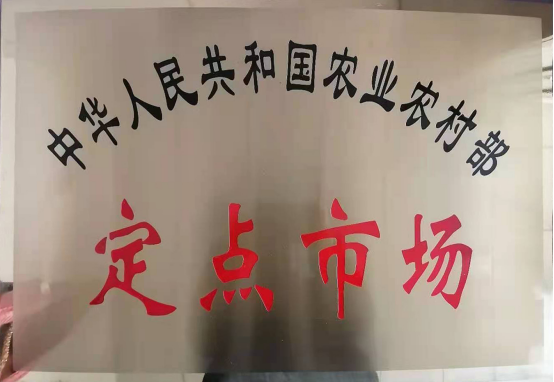 中华人民共和国农业农村部
定点市场